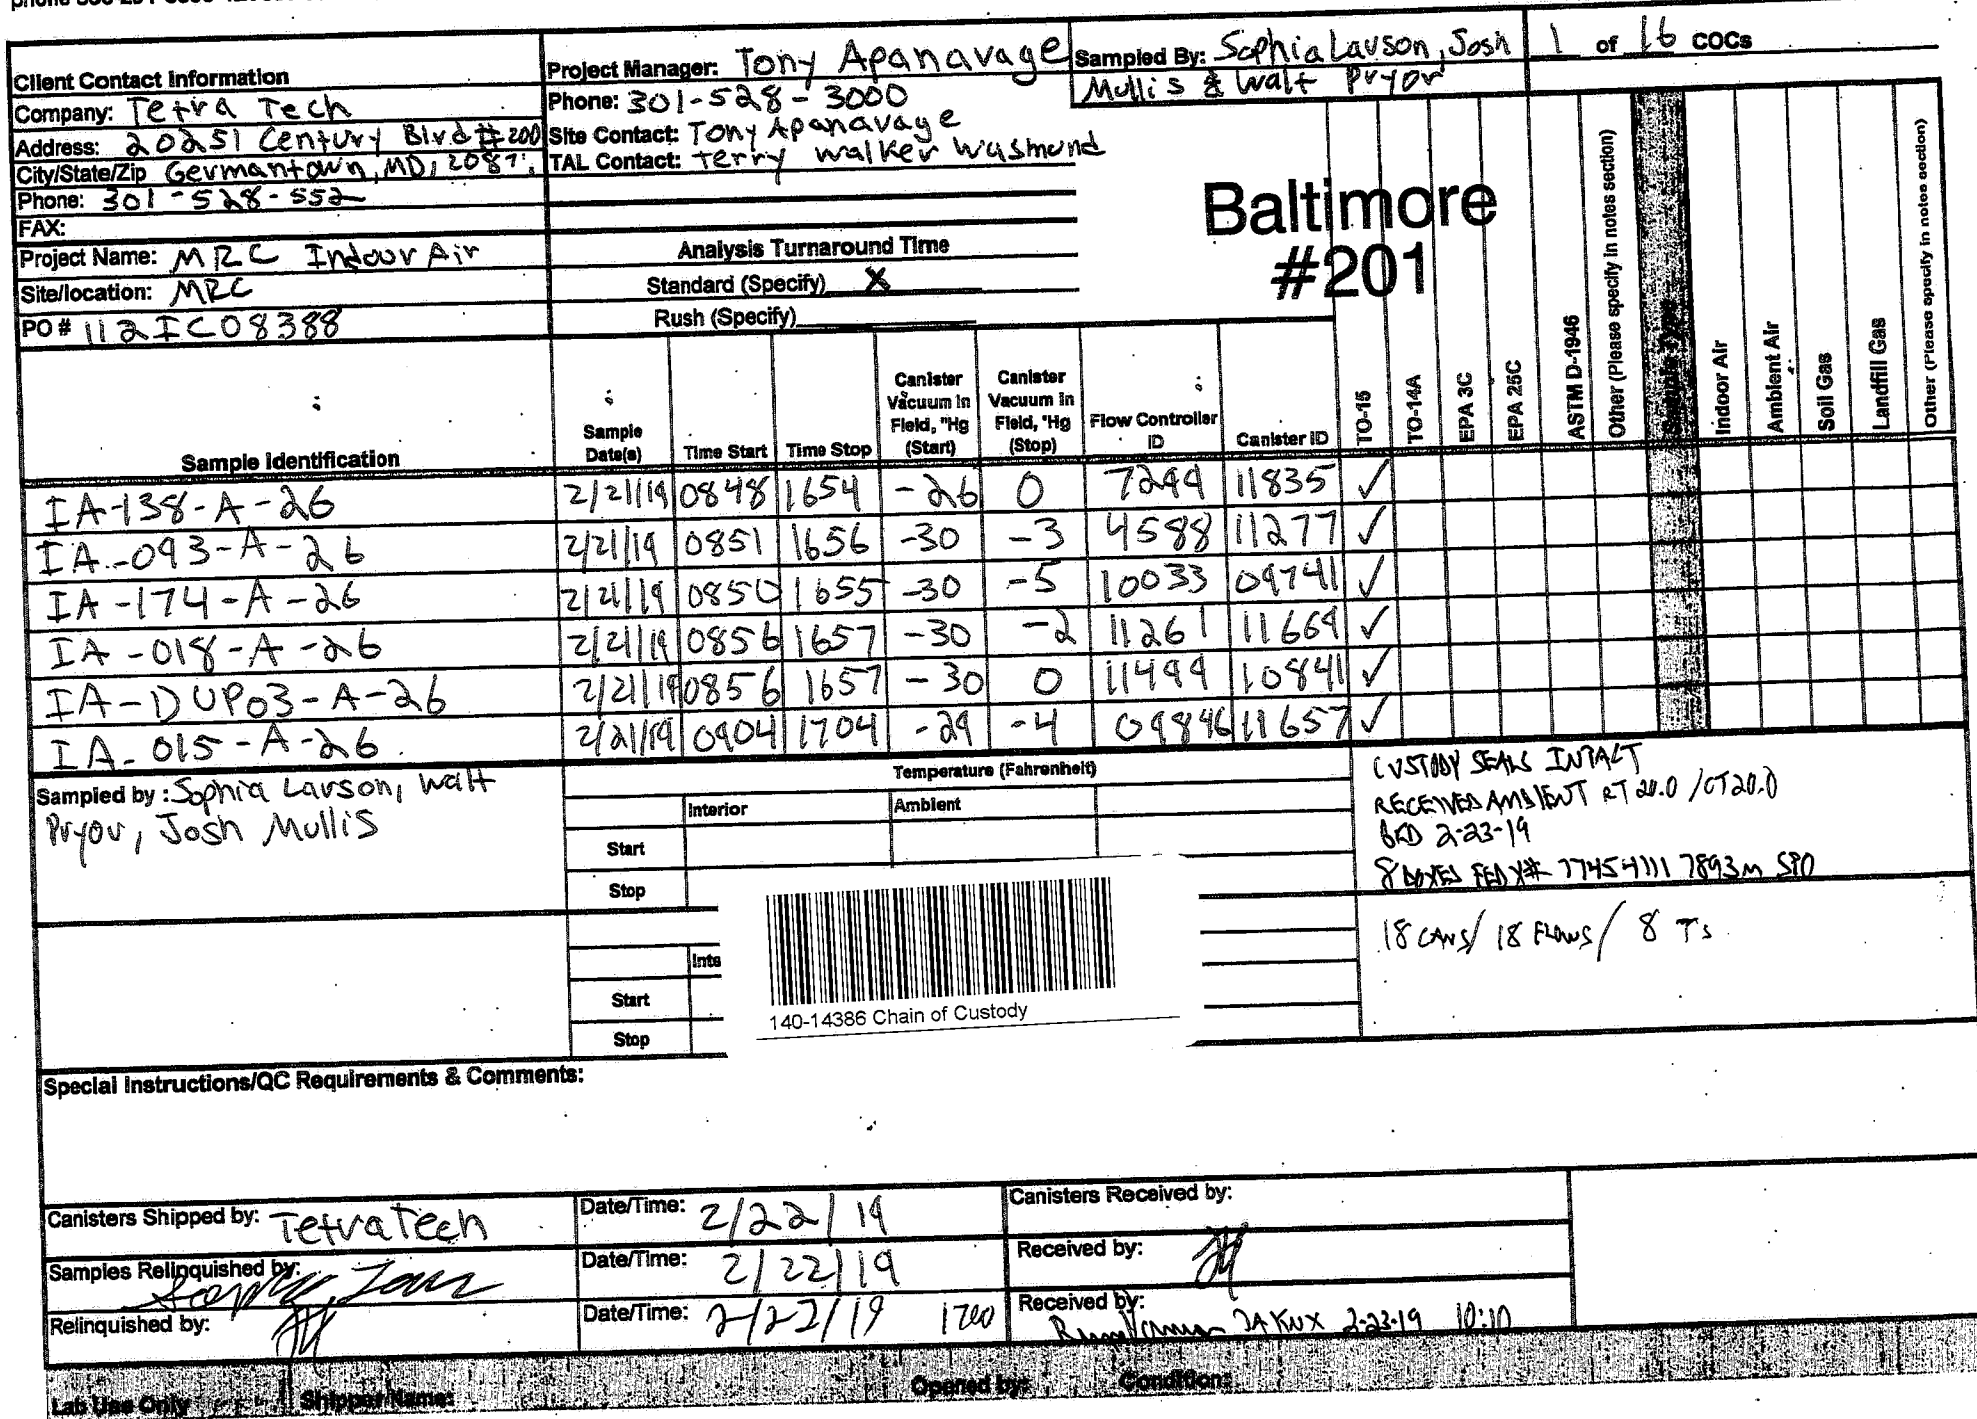 Client Contact Information
Company: Tetra Tech
Address: 20251 Century Blvd #200
City/State/Zip Germantown, MD, 2087
Phone: 301-528-552
FAX:
Project Name: MRC Indoor Air
Site/location: MRC
PO # 112IC08388
Project Manager: Tony Apanavage
Phone: 301-528-3000
Site Contact: Tony Apanavage
TAL Contact: Terry Walker Wasmund
Analysis Turnaround Time
Standard (Specify) X
Rush (Specify)
Sampled By: Sophia Lavson, Josh
Mullis & Walt Pryor
1 of 16 COCs
Baltimore
#201
Sample Identification
Sample Date(s)
Time Start
Time Stop
Canister Vacuum in Field, "Hg (Start)
Canister Vacuum in Field, "Hg (Stop)
Flow Controller ID
Canister ID
TO-15
TO-14A
EPA 3C
EPA 25C
ASTM D-1946
Other (Please specify in notes section)
Sample Type
Indoor Air
Ambient Air
Soil Gas
Landfill Gas
Other (Please specify in notes section)
IA-138-A-26 2/21/19 0848 1654 -26 0 7299 11835 ✓
IA-093-A-26 2/21/19 0851 1656 -30 -3 4588 11277 ✓
IA-174-A-26 2/21/19 0850 1655 -30 -5 10033 09741 ✓
IA-018-A-26 2/21/19 0856 1657 -30 -2 11261 11669 ✓
IA-DUP03-A-26 2/21/19 0856 1657 -30 0 11499 10841 ✓
IA-015-A-26 2/21/19 0904 1704 -29 -4 09846 11657 ✓
Sampled by: Sophia Lavson, Walt
Pryor, Josh Mullis
Temperature (Fahrenheit)
Interior Ambient
Start
Stop
Inte
Start
Stop
140-14386 Chain of Custody
CUSTODY SEALS INTACT
RECEIVED AMBIENT RT 20.0 / CT 20.0
2-23-19
8 BOXES FEDX# 77454111 7893
18 CANS / 18 FLOWS / 8 Ts
Special Instructions/QC Requirements & Comments:
Canisters Shipped by: TetraTech
Date/Time: 2/22/19
Canisters Received by:
Samples Relinquished by:
Date/Time: 2/22/19
Received by:
Relinquished by:
Date/Time: 2/22/19 1700
Received by: 2-23-19 10:10
Lab Use Only
Shipper Name:
Opened by:
Condition: